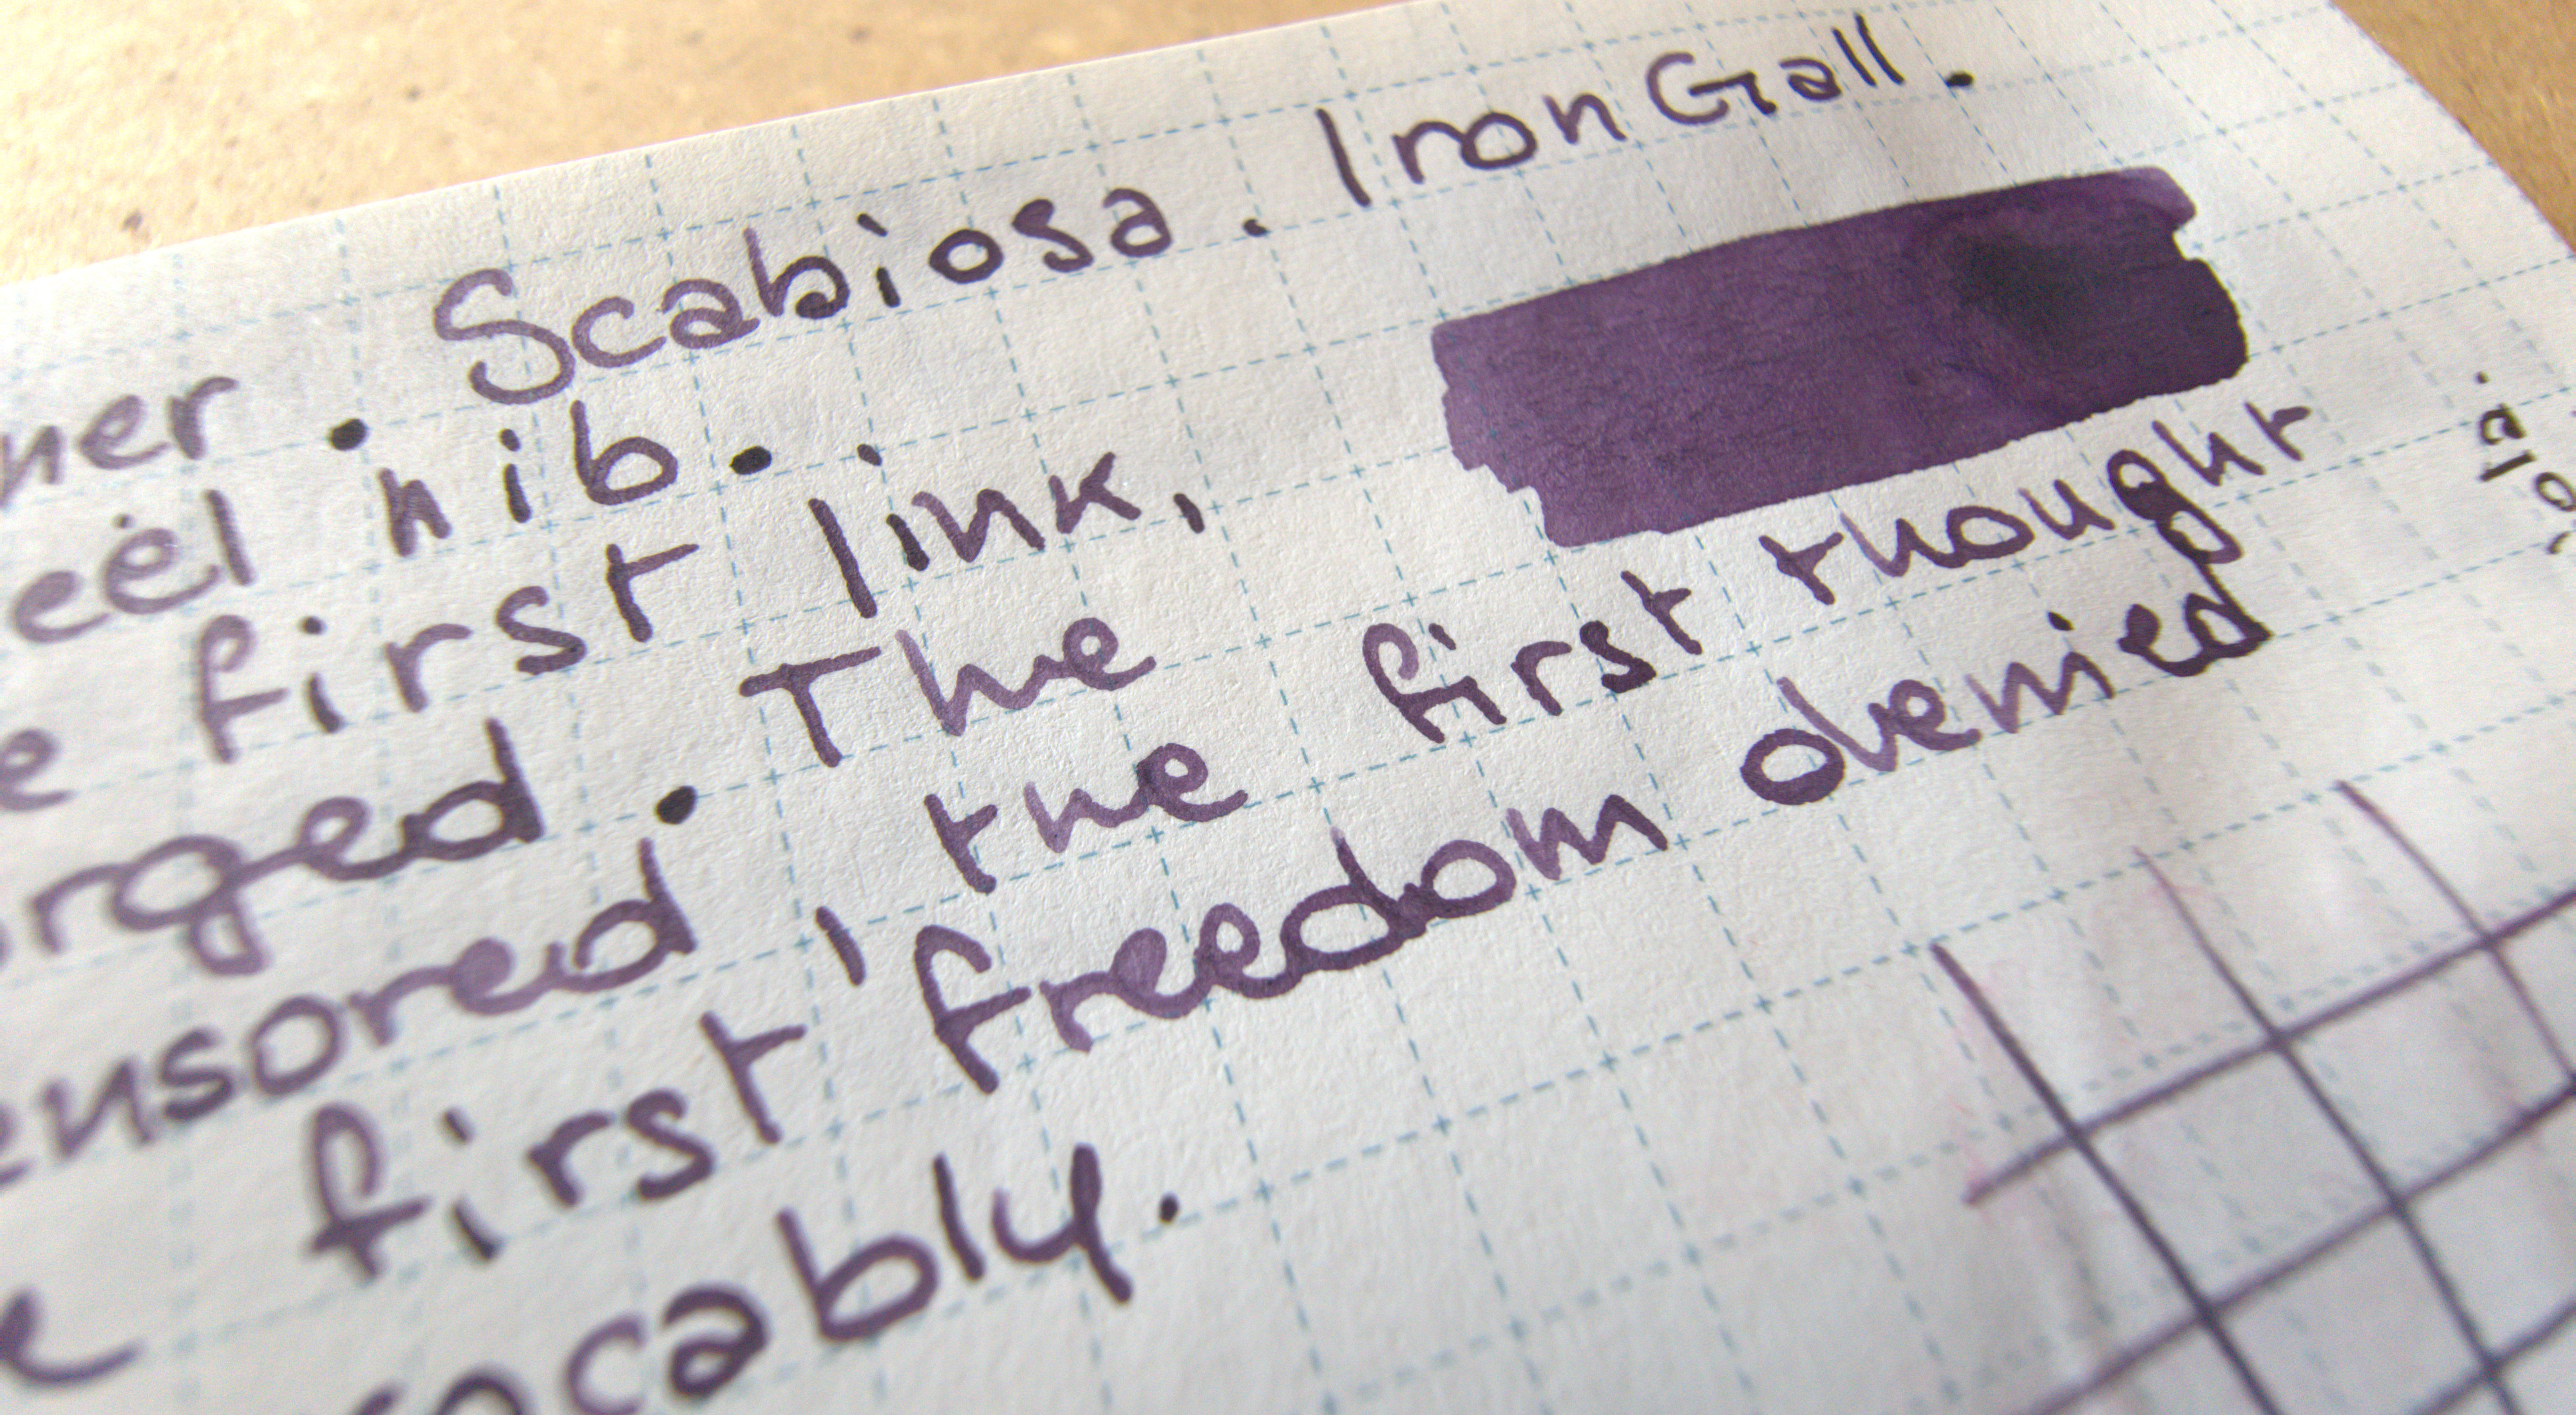 ner. Scabiosa. Iron Gall.
eel nib.
e first link,
rged. The
ensored, the first thought
e first freedom denied
ocably.